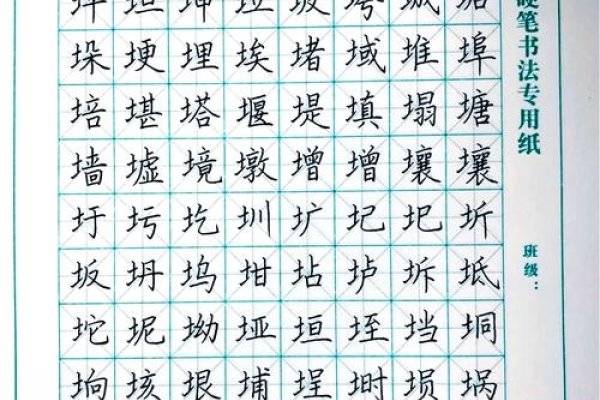 坤 垃 坡 垮 城
垛 埂 埋 埃 堵 域 堆 埠
培 堪 塔 堰 堤 填 塌 塘
墙 墟 境 墩 增 增 壤 壤
圩 圬 圪 圳 圹 圮 圯 圻
坂 坍 坞 坩 坫 垆 坼 坻
坨 坭 坳 垭 垣 垤 垱 垌
垧 垓 垠 埔 埕 埘 埙 埚
硬笔书法专用纸
班级：